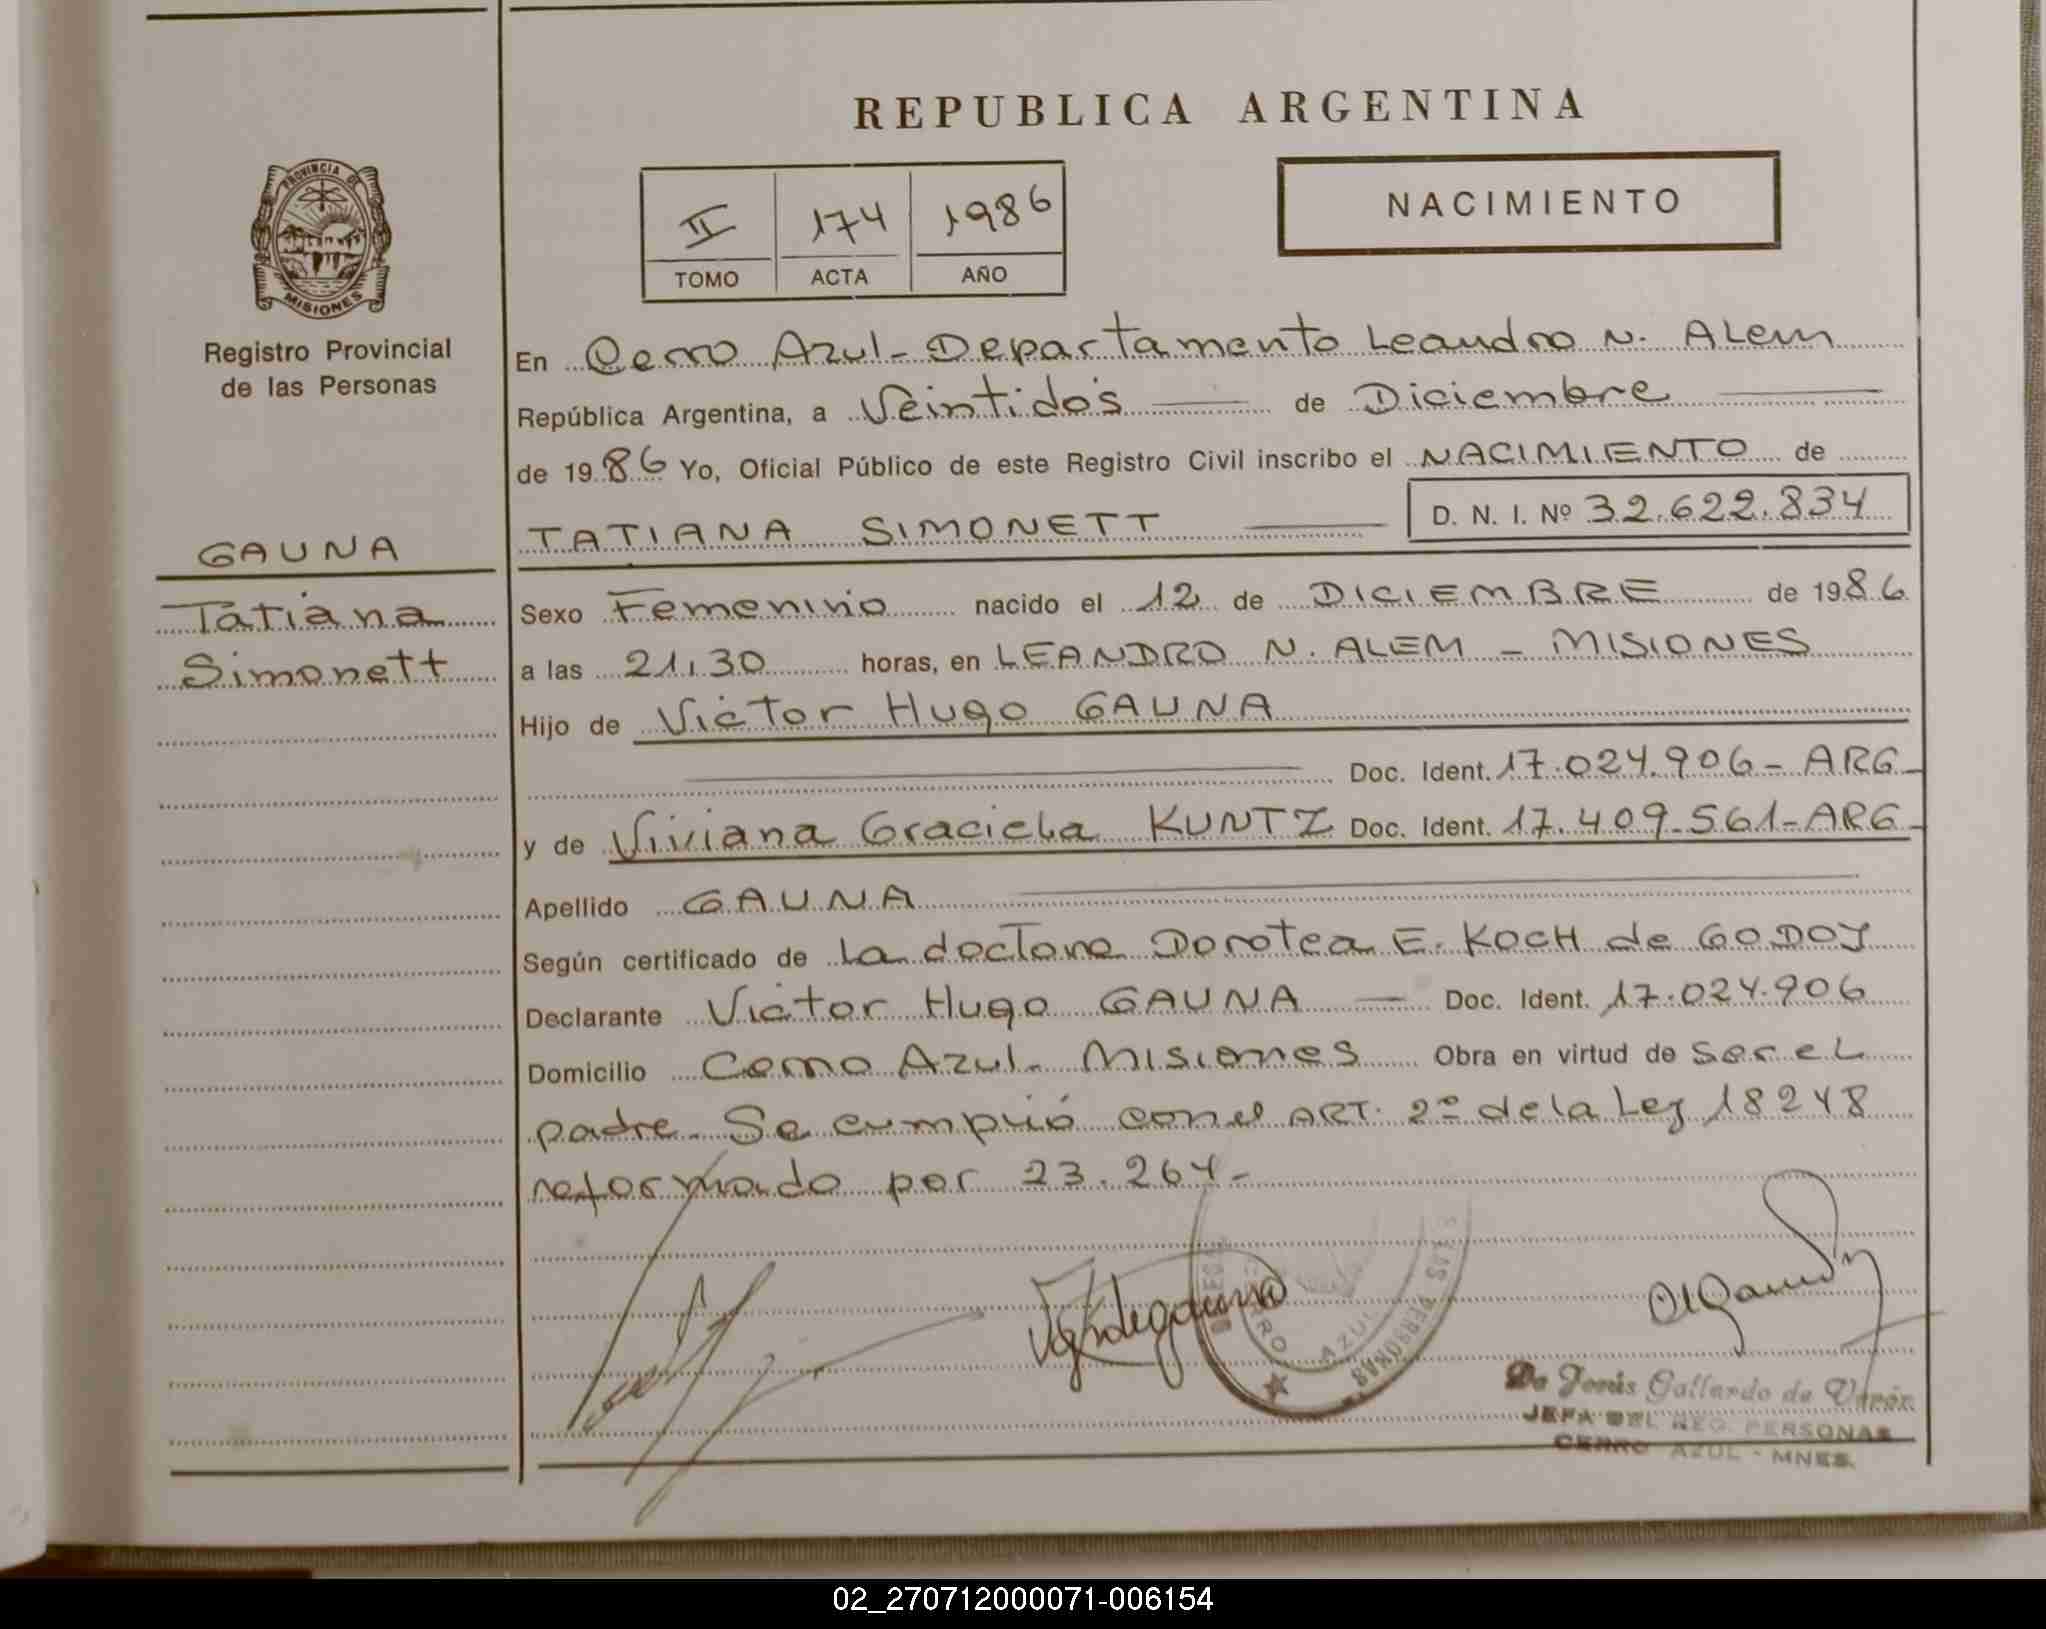 REPUBLICA ARGENTINA
PROVINCIA DE
MISIONES
Registro Provincial
de las Personas
II 174 1986
TOMO ACTA AÑO
NACIMIENTO
En Cerro Azul - Departamento Leandro N. Alem
República Argentina, a Veintidós de Diciembre
de 1986 Yo, Oficial Público de este Registro Civil inscribo el NACIMIENTO de
TATIANA SIMONETT D. N. I. Nº 32.622.834
GAUNA
Tatiana
Simonett
Sexo Femenino nacido el 12 de DICIEMBRE de 1986
a las 21,30 horas, en LEANDRO N. ALEM - MISIONES
Hijo de Victor Hugo GAUNA
Doc. Ident. 17.024.906 - ARG -
y de Viviana Graciela KUNTZ Doc. Ident. 17.409.561 - ARG -
Apellido GAUNA
Según certificado de La doctora Dorotea E. KOCH de GODOY
Declarante Victor Hugo GAUNA - Doc. Ident. 17.024.906
Domicilio Cerro Azul - Misiones Obra en virtud de ser el
padre. Se cumplió con el ART. 2º de la Ley 18248
reformado por 23.264 -
AZUL
PERSONAS
Gallardo de
JEFA DEL REG. PERSONAS
CERRO AZUL - MNES.
02_270712000071-006154